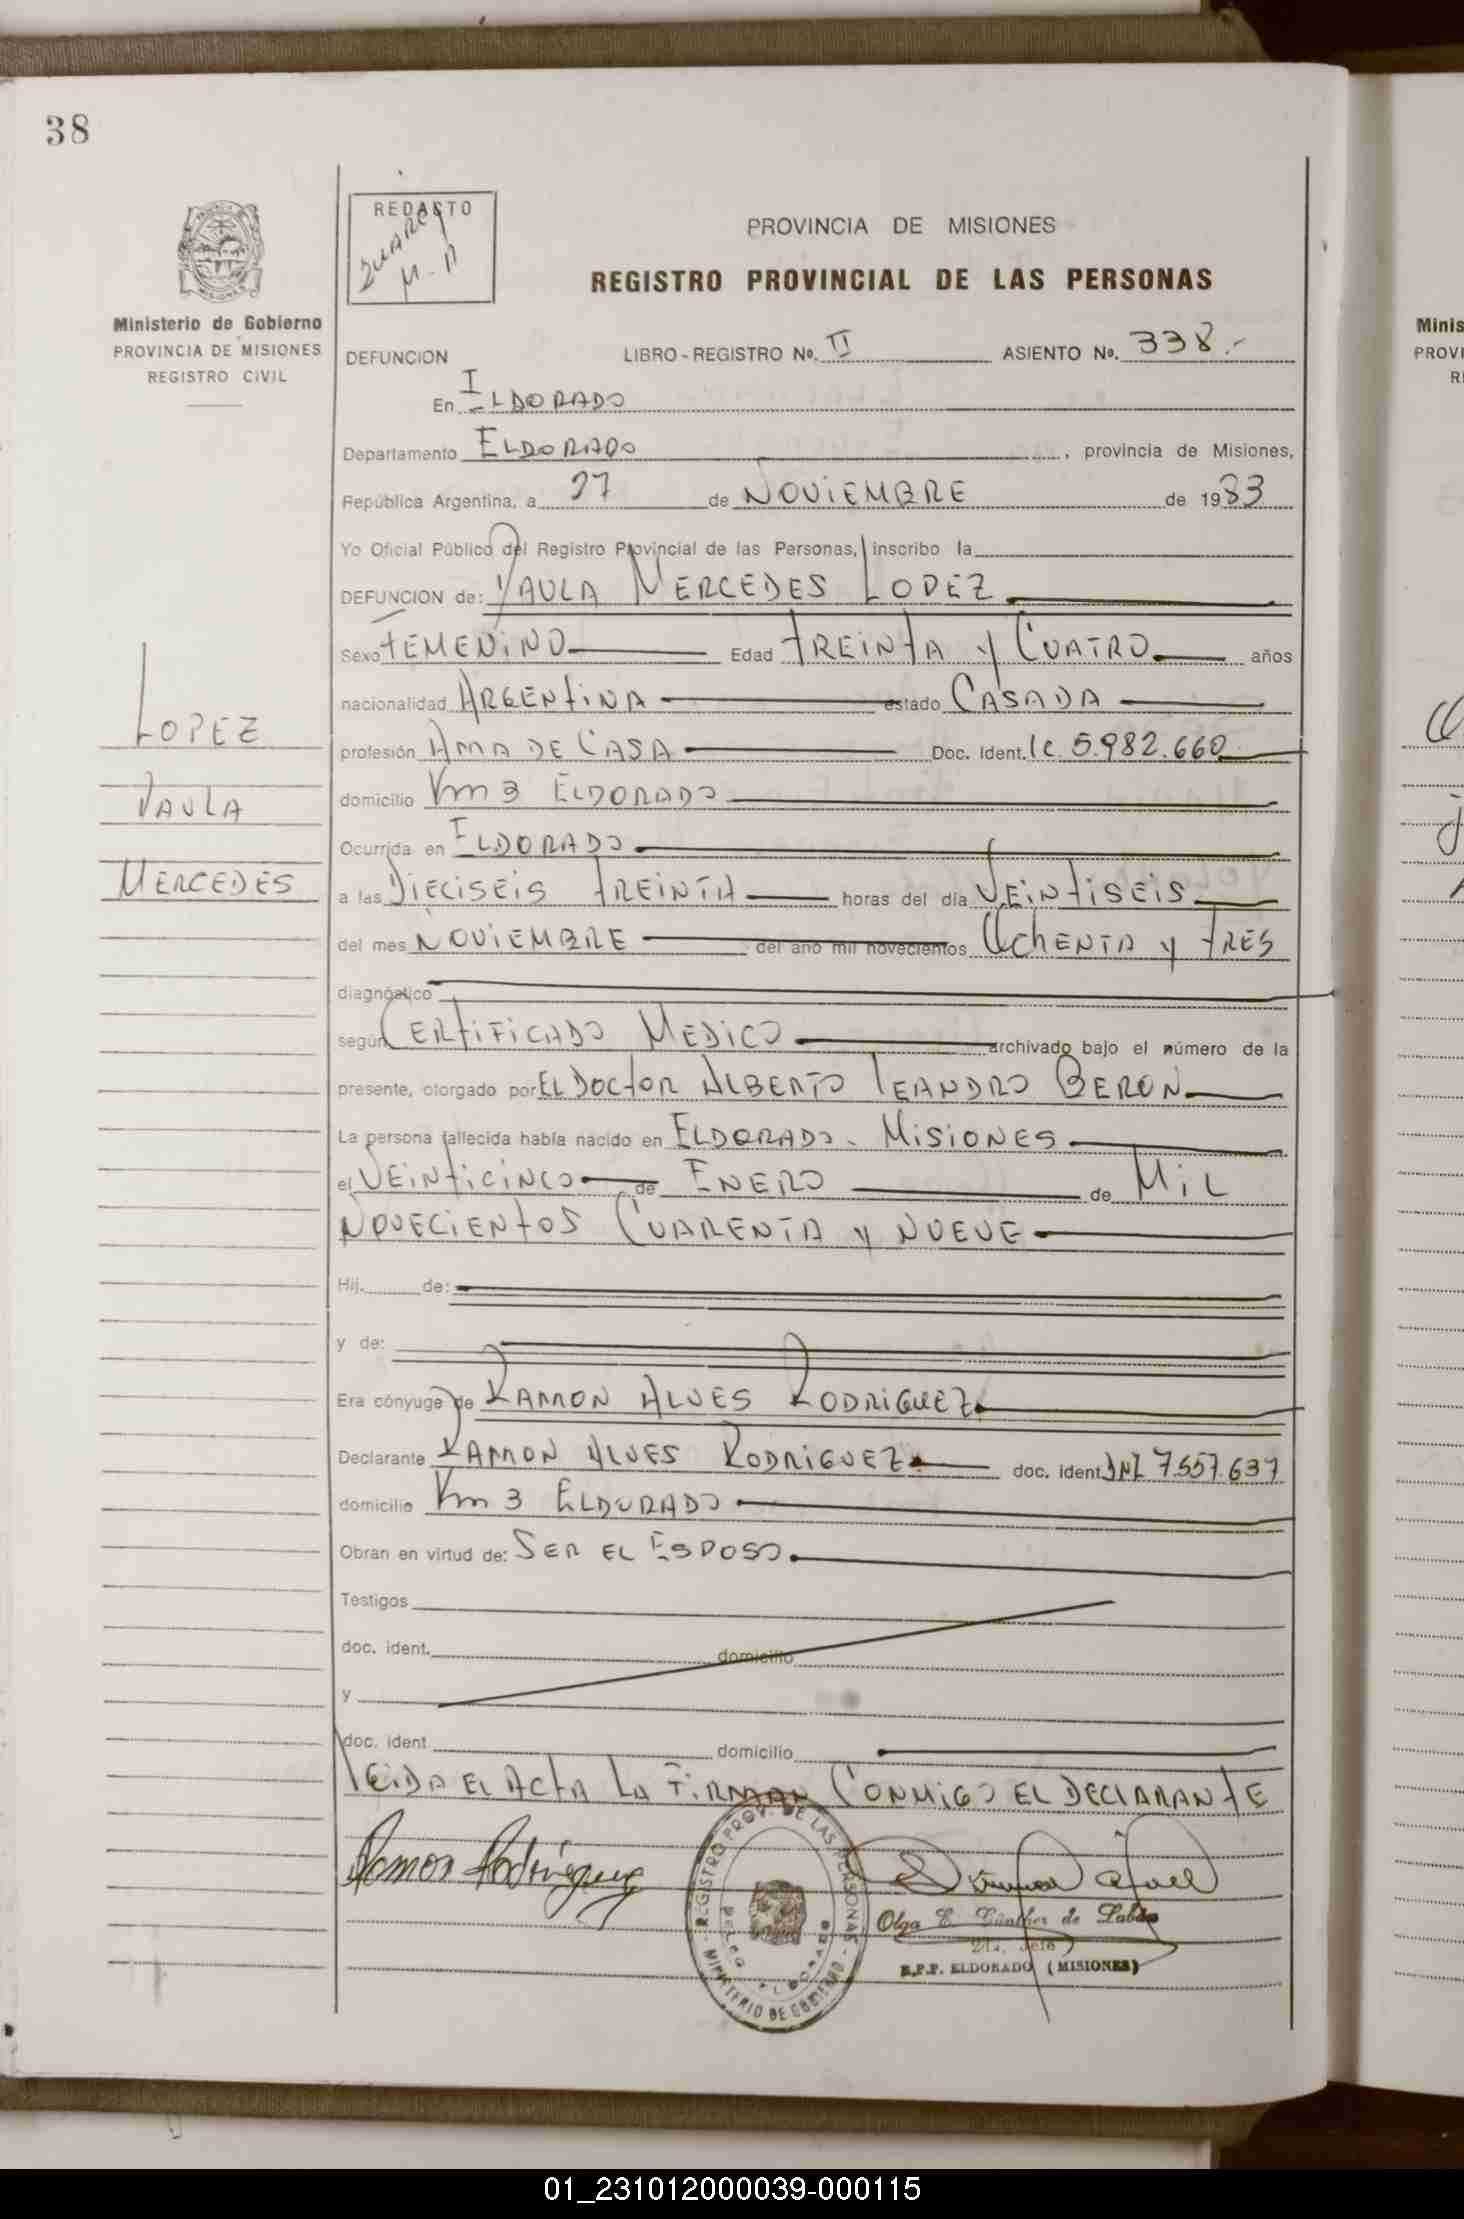 38
REDACTO
JUAREZ
M. A
PROVINCIA DE MISIONES
REGISTRO PROVINCIAL DE LAS PERSONAS
Ministerio de Gobierno
PROVINCIA DE MISIONES
REGISTRO CIVIL
DEFUNCION LIBRO - REGISTRO No. II ASIENTO No. 338.-
En ELDORADO
Departamento ELDORADO, provincia de Misiones,
República Argentina, a 27 de NOVIEMBRE de 1983
Yo Oficial Público del Registro Provincial de las Personas, inscribo la
DEFUNCION de: PAULA MERCEDES LOPEZ
Sexo FEMENINO Edad TREINTA y CUATRO años
nacionalidad ARGENTINA estado CASADA
LOPEZ
PAULA
MERCEDES
profesión AMA DE CASA Doc. Ident. lc. 5.982.660
domicilio Km 3 ELDORADO
Ocurrida en ELDORADO
a las DIECISEIS TREINTA horas del día VEINTISEIS
del mes NOVIEMBRE del año mil novecientos OCHENTA y TRES
diagnóstico
según CERTIFICADO MEDICO archivado bajo el número de la
presente, otorgado por EL DOCTOR ALBERTO LEANDRO BERON
La persona fallecida había nacido en ELDORADO - MISIONES
el VEINTICINCO de ENERO de MIL
NOVECIENTOS CUARENTA y NUEVE
Hij. de:
y de:
Era cónyuge de RAMON ALVES RODRIGUEZ
Declarante RAMON ALVES RODRIGUEZ doc. ident. DNI 7.557.637
domicilio Km 3 ELDORADO
Obran en virtud de: SER EL ESPOSO
Testigos
doc. ident. domicilio
y
doc. ident. domicilio
LEIDA EL ACTA LA FIRMAN CONMIGO EL DECLARANTE
Ramon Rodriguez
REGISTRO PROV. DE LAS PERSONAS
MINISTERIO DE GOBIERNO
DELEG ELDORADO
Olga E. Günther de
R.P.P. ELDORADO (MISIONES)
Minis
PROVI
RI
01_231012000039-000115